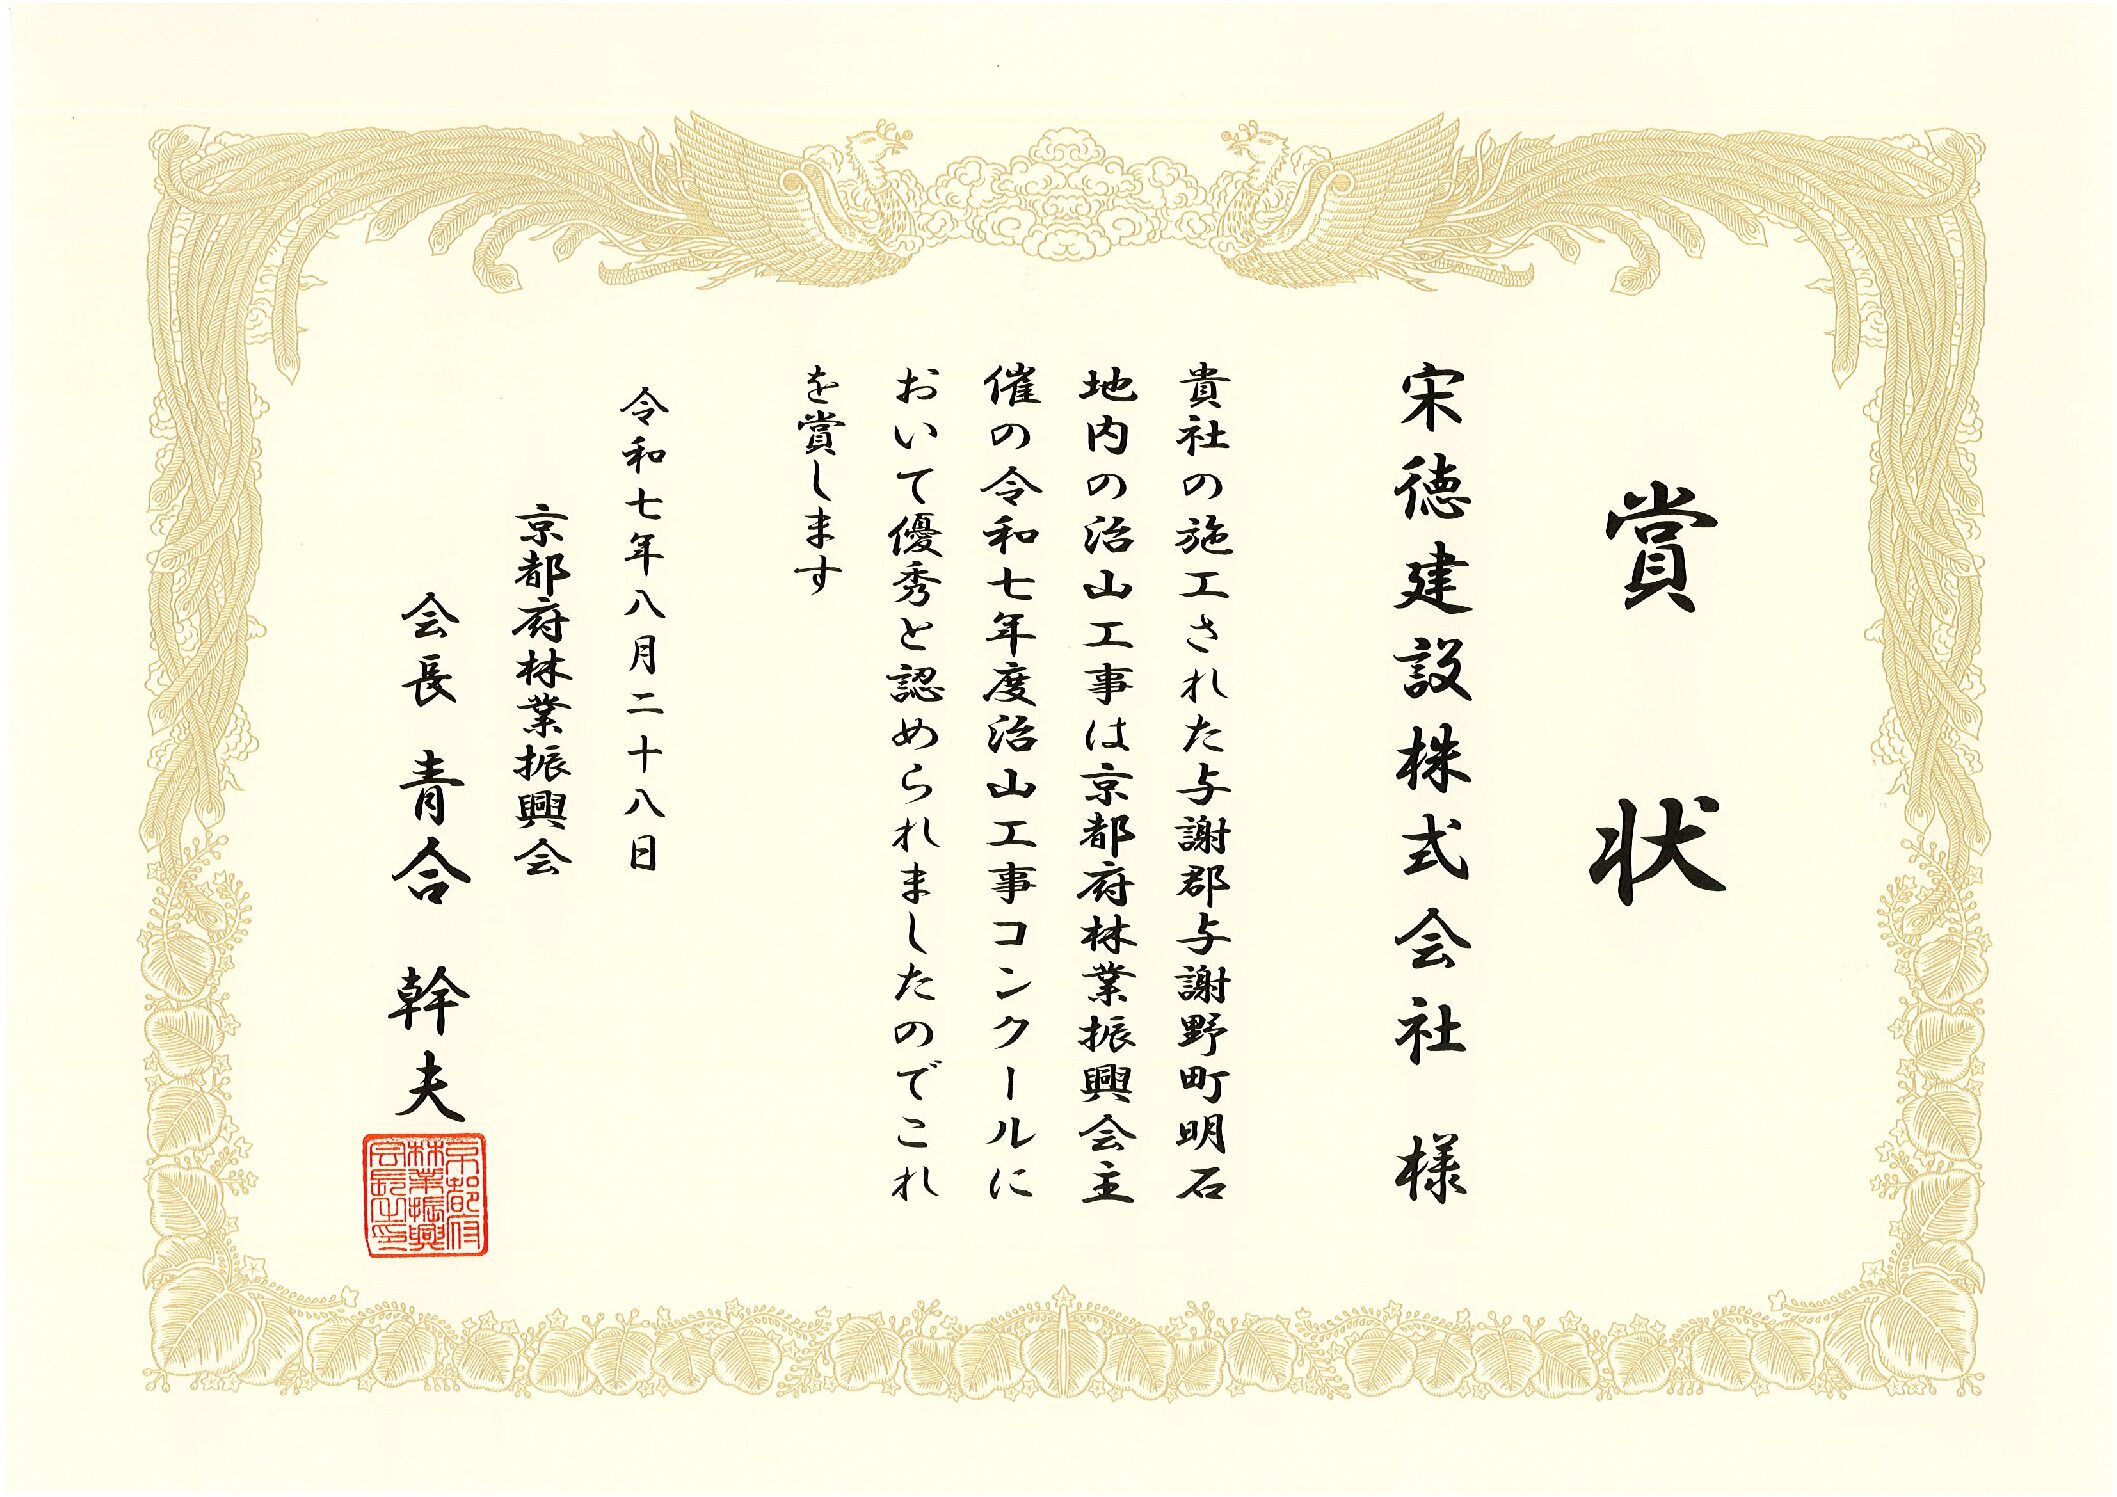 賞状
宋徳建設株式会社 様
貴社の施工された与謝郡与謝野町明石
地内の治山工事は京都府林業振興会主
催の令和七年度治山工事コンクールに
おいて優秀と認められましたのでこれ
を賞します
令和七年八月二十八日
京都府林業振興会
会長 青合 幹夫
京都府
林業振興
会長之印